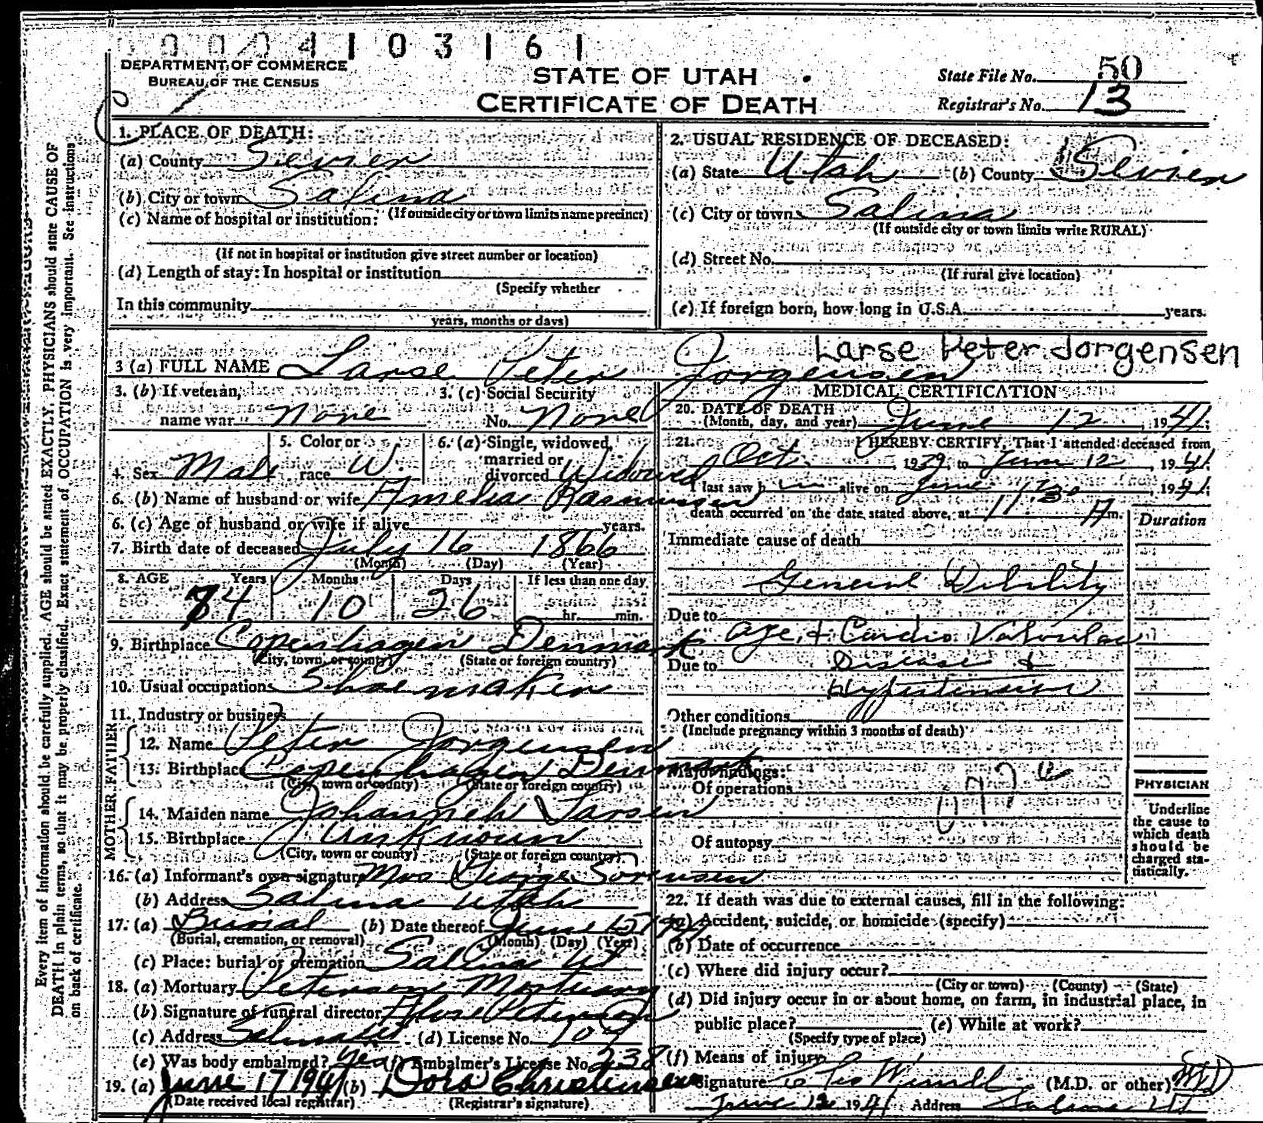 00041 03 | 6 |
DEPARTMENT OF COMMERCE
BUREAU OF THE CENSUS
STATE OF UTAH
CERTIFICATE OF DEATH
State File No. 50
Registrar's No. 13
Every item of information should be carefully supplied. AGE should be stated EXACTLY. PHYSICIANS should state CAUSE OF
DEATH in plain terms, so that it may be properly classified. Exact statement of OCCUPATION is very important. See instructions
on back of certificate.
1. PLACE OF DEATH:
(a) County Sevier
(b) City or town Salina
(c) Name of hospital or institution: (If outside city or town limits name precinct)
(If not in hospital or institution give street number or location)
(d) Length of stay: In hospital or institution
(Specify whether
In this community
years, months or days)
2. USUAL RESIDENCE OF DECEASED:
(a) State Utah (b) County Sevier
(c) City or town Salina
(If outside city or town limits write RURAL)
(d) Street No.
(If rural give location)
(e) If foreign born, how long in U.S.A. years.
3 (a) FULL NAME Larse Peter Jorgensen Larse Peter Jorgensen
3. (b) If veteran, name war None
3. (c) Social Security No. None
4. Sex Male
5. Color or race W.
6. (a) Single, widowed, married or divorced Widowed
6. (b) Name of husband or wife Amelia Rasmussen
6. (c) Age of husband or wife if alive years.
7. Birth date of deceased July 16 1866
(Month) (Day) (Year)
8. AGE Years Months Days If less than one day
74 10 26 hr. min.
9. Birthplace Copenhagen Denmark
(City, town, or county) (State or foreign country)
10. Usual occupation Shoemaker
11. Industry or business
FATHER
12. Name Peter Jorgensen
13. Birthplace Copenhagen Denmark
(City, town or county) (State or foreign country)
MOTHER
14. Maiden name Johanneh Larsen
15. Birthplace Unknown
(City, town or county) (State or foreign country)
16. (a) Informant's own signature Mrs George Sorensen
(b) Address Salina Utah
17. (a) Burial (b) Date thereof June 15 1941
(Burial, cremation, or removal) (Month) (Day) (Year)
(c) Place: burial or cremation Salina Ut
18. (a) Mortuary Peterson Mortuary
(b) Signature of funeral director Peterson
(c) Address Salina Ut (d) License No. 107
(e) Was body embalmed? Yes (f) Embalmer's License No. 238
19. (a) June 17 1941 (b) Dora Christensen
(Date received local registrar) (Registrar's signature)
MEDICAL CERTIFICATION
20. DATE OF DEATH June 12 1941
(Month, day, and year)
21. I HEREBY CERTIFY, That I attended deceased from
Oct. 1939, to June 12, 1941
I last saw him alive on June 1941
death occurred on the date stated above, at 11:30 A m.
Duration
Immediate cause of death
General Debility
Due to Age, + Cardio Valvular
Due to Disease +
Hypertension
Other conditions
(Include pregnancy within 3 months of death)
Major findings:
Of operations
Of autopsy
PHYSICIAN
Underline
the cause to
which death
should be
charged sta-
tistically.
22. If death was due to external causes, fill in the following:
(a) Accident, suicide, or homicide (specify)
(b) Date of occurrence
(c) Where did injury occur?
(City or town) (County) (State)
(d) Did injury occur in or about home, on farm, in industrial place, in
public place? (e) While at work?
(Specify type of place)
(f) Means of injury
Signature (M.D. or other) MD
June 12 1941 Address Salina Ut